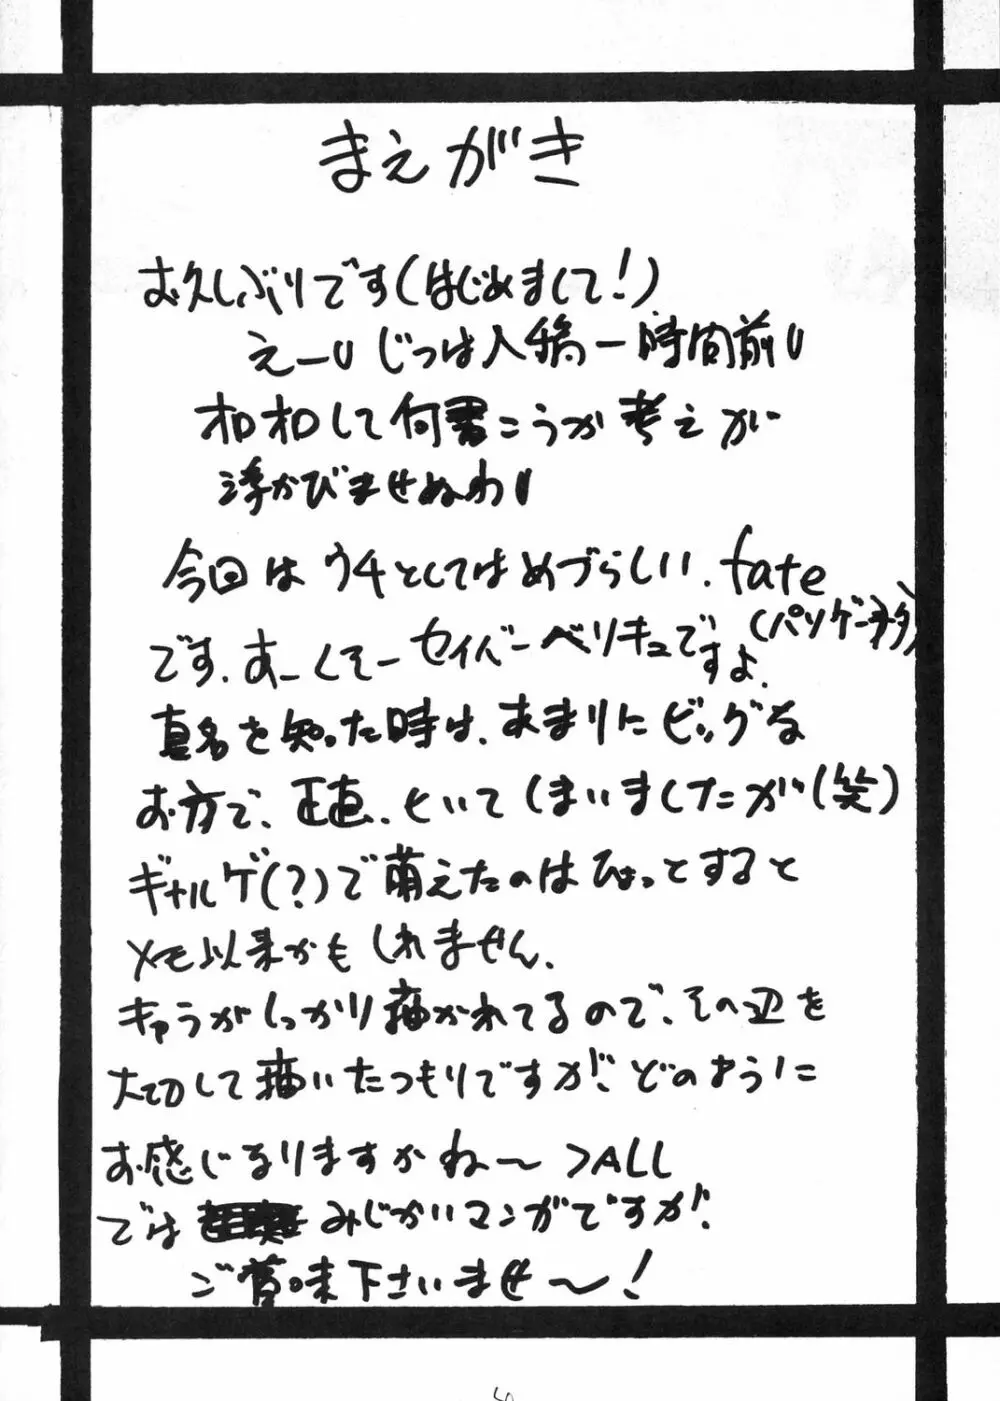 まえがき
お久しぶりです(はじめまして!)
えーじつは入稿一時間前
オロオロして何書こうか考えが
浮かびませぬわ
今回はウチとしてはめづらしい、fate
です。あーくそーセイバーベリキューですよ。(パソゲー
真名を知った時は、あまりにビッグな
お方で、正直、といてしまいましたが(笑)
ギャルゲ(?)で萌えたのはひょっとすると
メモ以来かもしれません。
キャラがしっかり描かれてるので、その辺を
大切して描いたつもりですが、どのように
お感じなりますかね〜>ALL
では みじかいマンガですが、
ご賞味下さいませ〜!